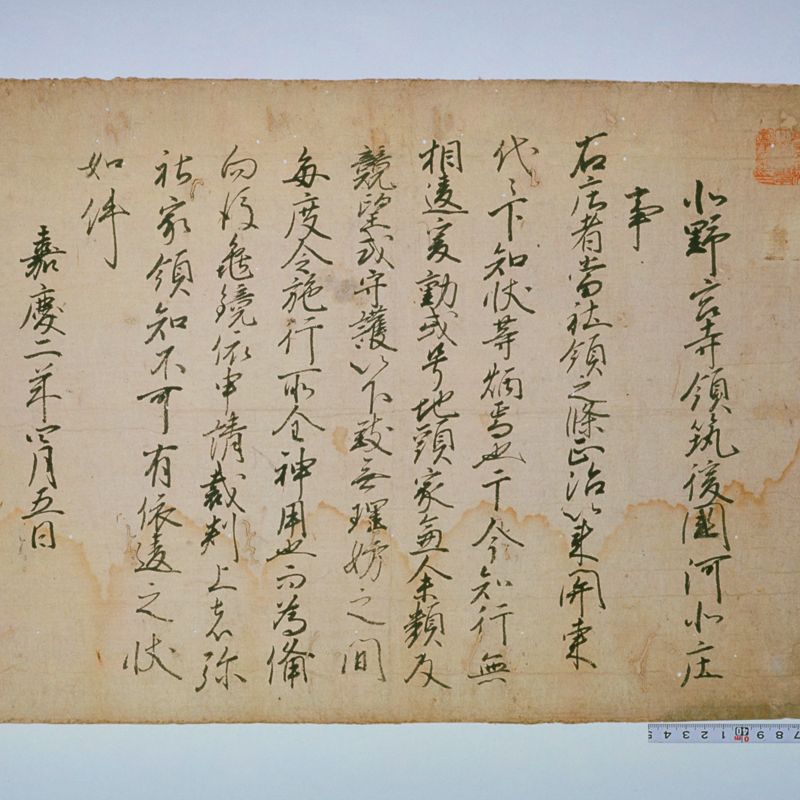 北野宮寺領筑後國河北庄
事
右庄者当社領之條正治以来関東
代々下知状等炳焉也于今知行無
相違之處動或号地頭家無余類及
競望或守護以下致無理妨之間
毎度令施行所全神用也而為備
向後亀鏡依申請裁判上者弥
社家領知不可有依違之状
如件
嘉慶二年四月五日